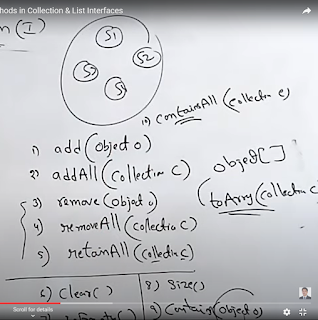 hods in Collection & List Interfaces
n (I)
S1
S2
S3
S4
10) containsAll (collectin c)
1) add (Object o)
2) addAll (Collectin C)
3) remove (Object o)
4) removeAll (collectio C)
5) retainAll (Collectin C)
object[]
(toArry (Collectnc
6) Clear( )
8) Size( )
9) Contains (Object o)
Scroll for details